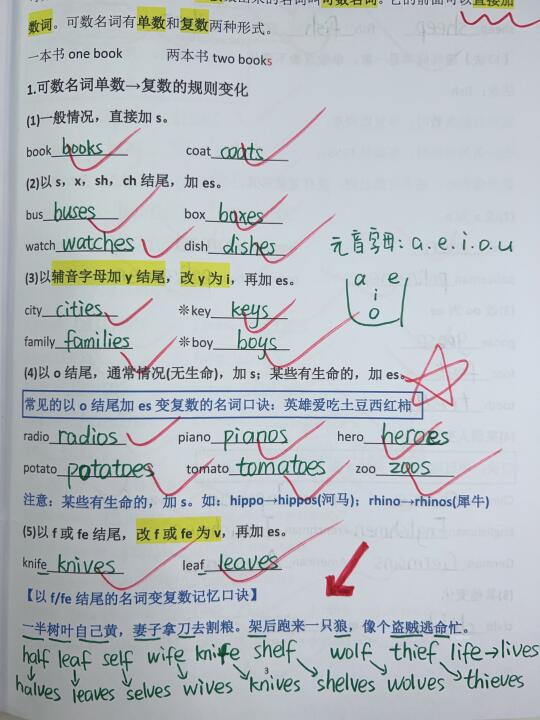 数词。可数名词有单数和复数两种形式。
一本书 one book 两本书 two books
1.可数名词单数→复数的规则变化
(1)一般情况，直接加 s。
book books coat coats
(2)以 s，x，sh，ch 结尾，加 es。
bus buses box boxes
watch watches dish dishes
元音字母: a.e.i.o.u
(3)以辅音字母加 y 结尾，改 y 为 i，再加 es。
a e
i
o
city cities ※key keys
family families ※boy boys
(4)以 o 结尾，通常情况(无生命)，加 s；某些有生命的，加 es。
常见的以 o 结尾加 es 变复数的名词口诀：英雄爱吃土豆西红柿
radio radios piano pianos hero heroes
potato potatoes tomato tomatoes zoo zoos
注意：某些有生命的，加 s。如：hippo→hippos(河马)；rhino→rhinos(犀牛)
(5)以 f 或 fe 结尾，改 f 或 fe 为 v，再加 es。
knife knives leaf leaves
【以 f/fe 结尾的名词变复数记忆口诀】
一半树叶自己黄，妻子拿刀去割粮。架后跑来一只狼，像个盗贼逃命忙。
half leaf self wife knife shelf wolf thief life→lives
halves leaves selves wives knives shelves wolves thieves
3